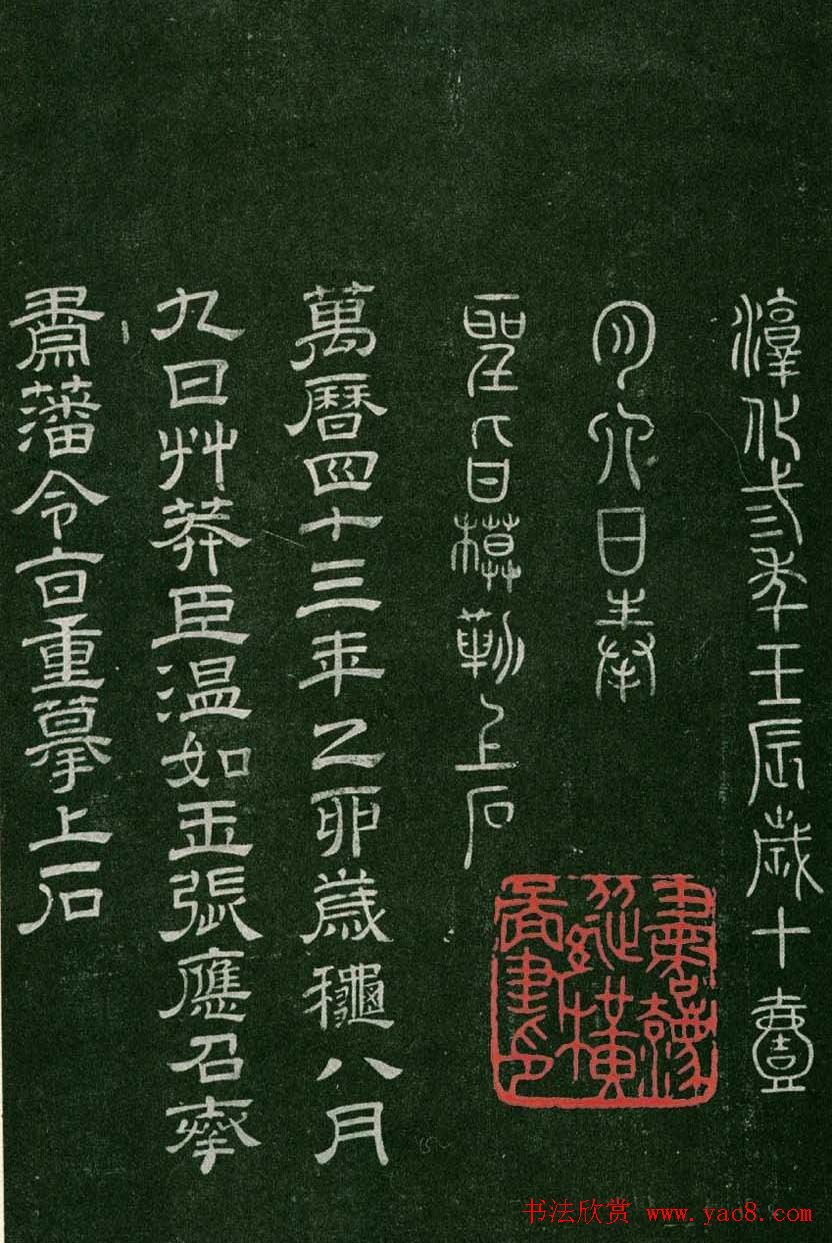 淳化弎年壬辰歲十壹
月六日奉
聖旨模勒上石
萬曆四十三年乙卯歲穐八月
九日艸莽臣溫如玉張應召奉
肅藩令旨重摹上石
书法欣赏 www.yac8.com